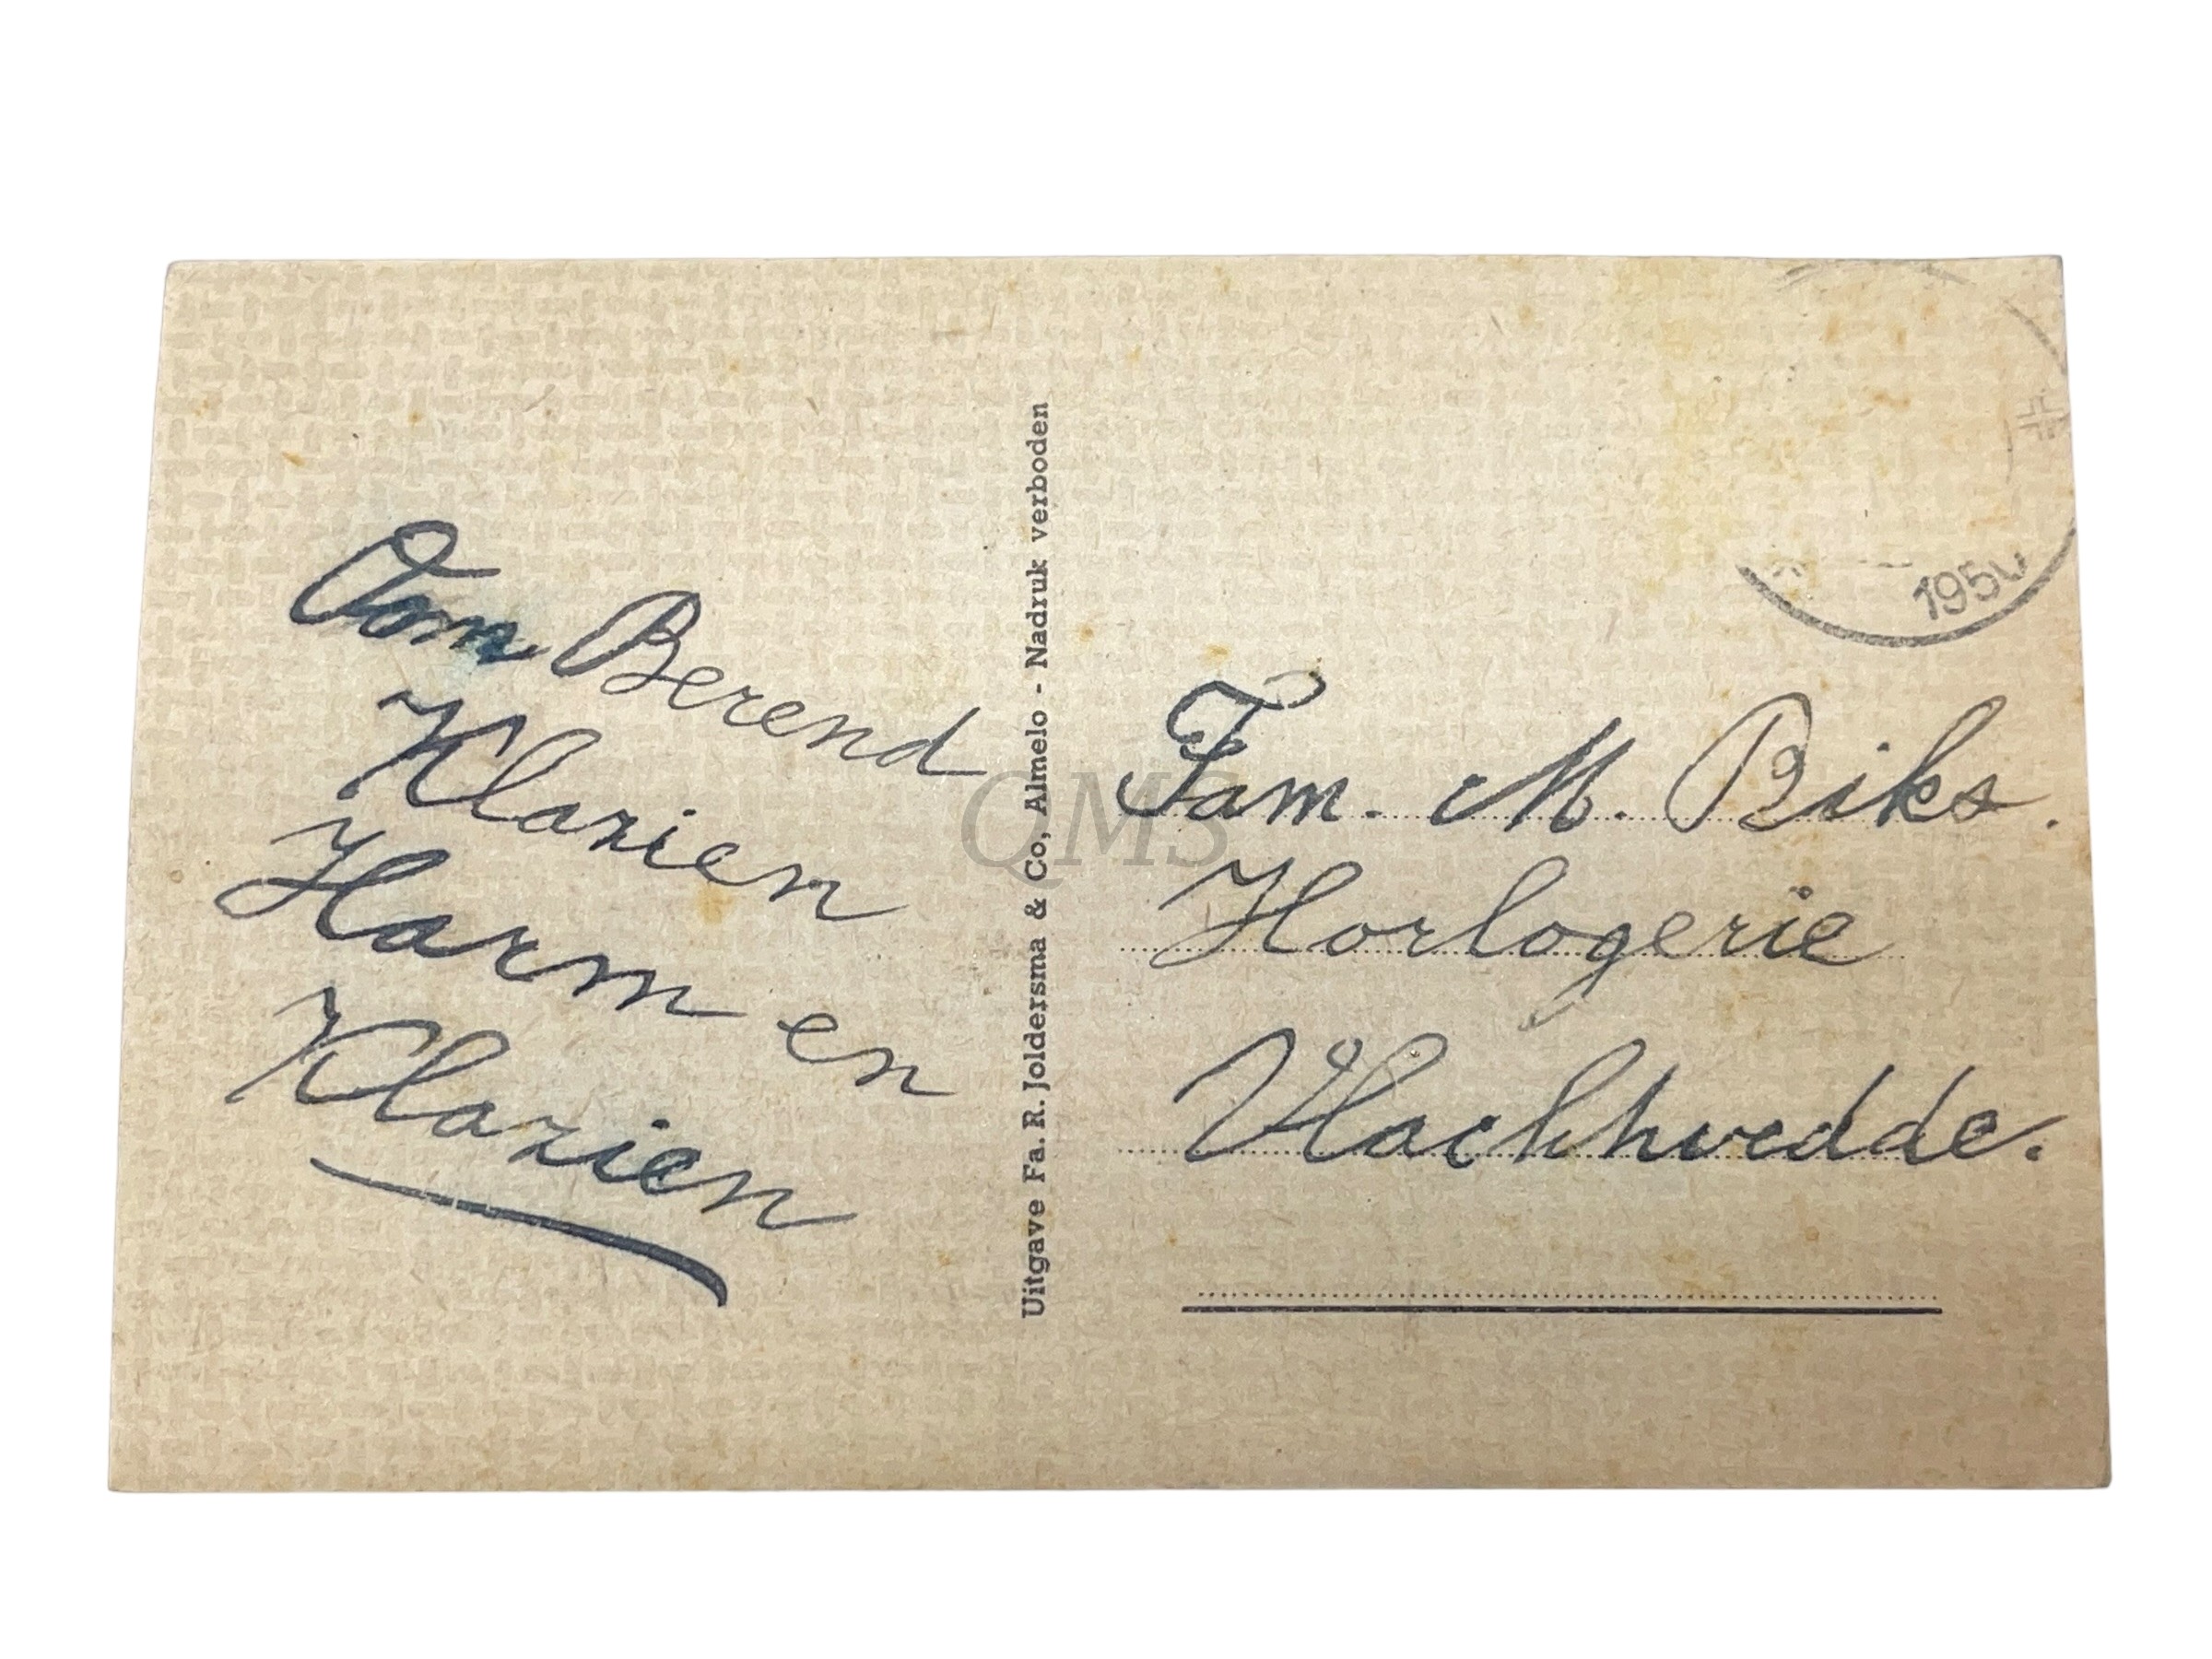 Oom Berend
Klazien
Harm en
Klazien
Uitgave Fa. R. Joldersma & Co, Almelo - Nadruk verboden
QMS
1950
Fam. M. Biks.
Horlogerie
Vlachtwedde.